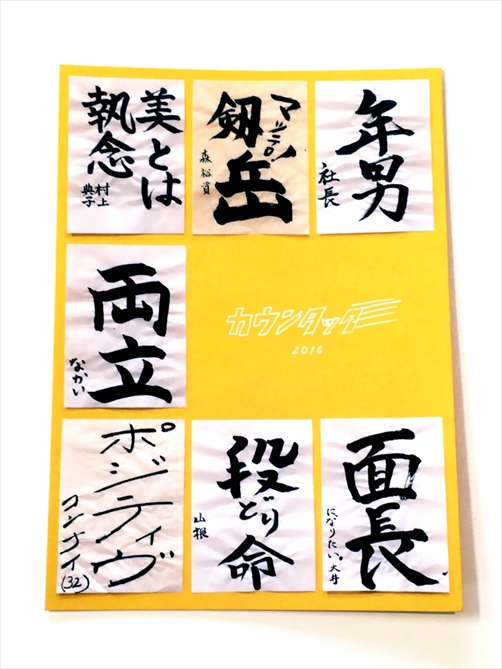 年男
社長
マッテロ!
剱岳
森裕貴
美とは
執念
村上
典子
両立
なかい
カウンタック
2016
面長
になりたい。大井
段どり命
山根
ポジティヴ
コンナイ
(32)